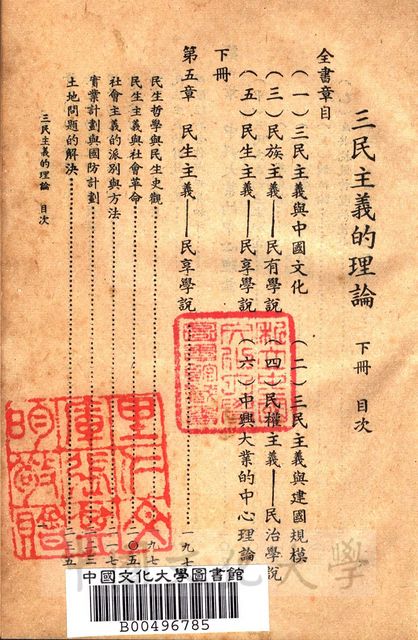 三民主義的理論 下冊 目次
全書章目
(一)三民主義與中國文化 (二)三民主義與建國規模
(三)民族主義——民有學說 (四)民權主義——民治學說
(五)民生主義——民享學說 (六)中興大業的中心理論
下冊
第五章 民生主義——民享學說
民生哲學與民生史觀
民生主義與社會革命
社會主義的派別與方法
實業計劃與國防計劃
土地問題的解決
三民主義的理論 目次
中國文化大學圖書館
B00496785